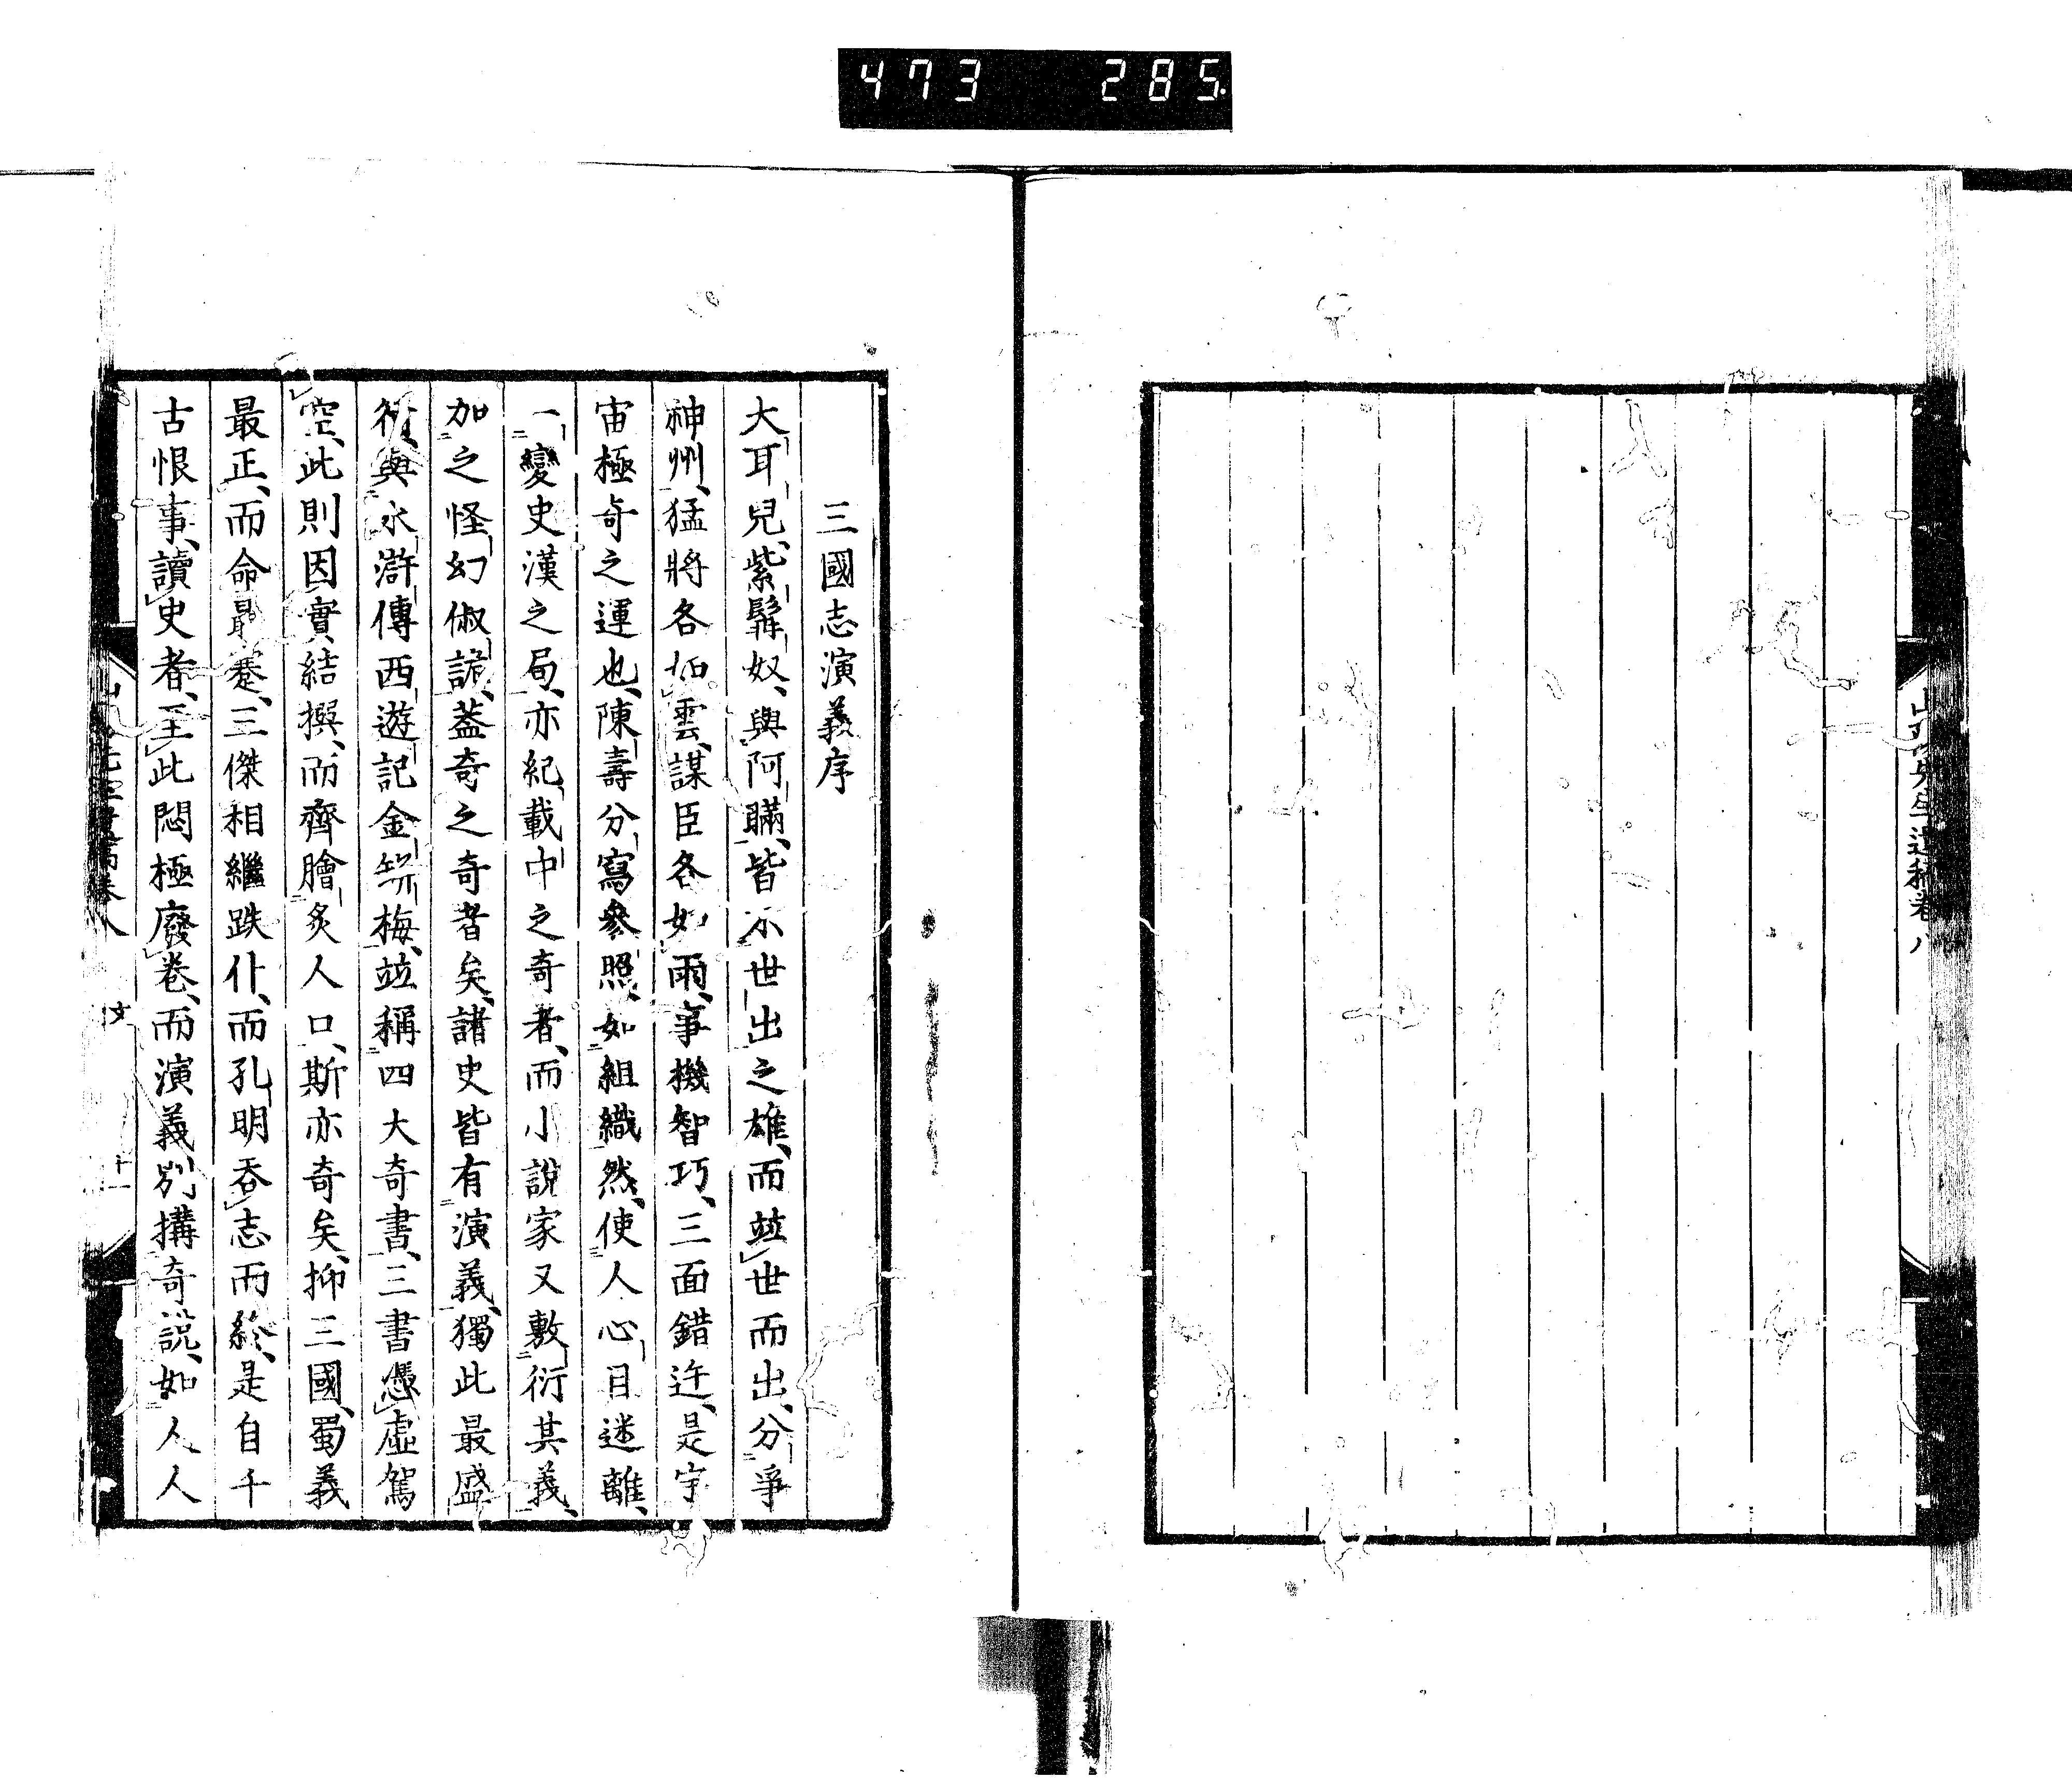 473 285.
三國志演義序
大耳兒、紫髯奴、與阿瞞、皆不世出之雄、而竝世而出、分爭
神州、猛將各如雲、謀臣各如雨、事機智巧、三面錯迕、是宇
宙極奇之運也、陳壽分寫參照、如組織然、使人心目迷離、
一變史漢之局、亦紀載中之奇者、而小說家又敷衍其義、
加之怪幻俶詭、蓋奇之奇者矣、諸史皆有演義、獨此最盛
行、與水滸傳西遊記金瓶梅、竝稱四大奇書、三書憑虛駕
空、此則因實結撰、而齊膾炙人口、斯亦奇矣、抑三國、蜀義
最正、而命最蹇、三傑相繼跌仆、而孔明吞志而終、是自千
古恨事、讀史者、至此悶極廢卷、而演義別搆奇說、如人人
卷八 文 十一
先生遺稿卷八